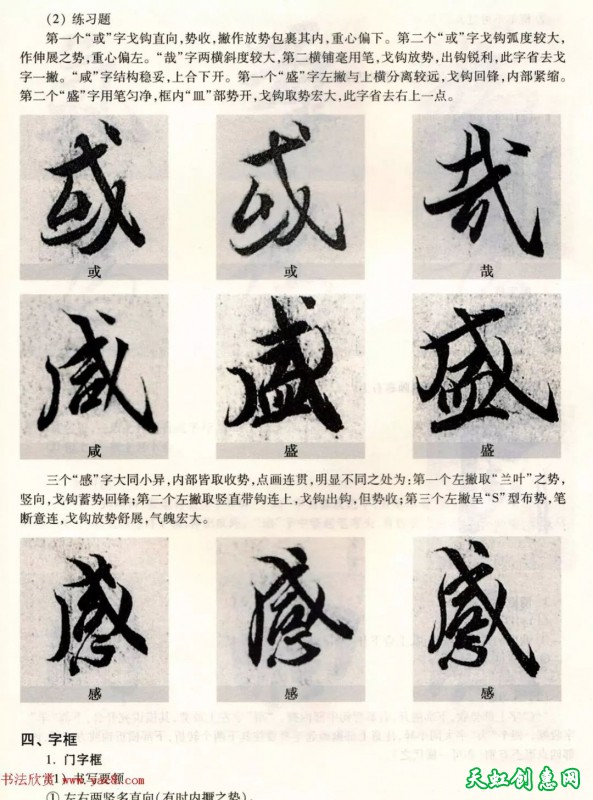 （2）练习题
第一个“或”字戈钩直向,势收,撇作放势包裹其内,重心偏下。第二个“或”字戈钩弧度较大,
作伸展之势,重心偏左。“哉”字两横斜度较大,第二横铺毫用笔,戈钩放势,出钩锐利,此字省去戈
字一撇。“咸”字结构稳妥,上合下开。第一个“盛”字左撇与上横分离较远,戈钩回锋,内部紧缩。
第二个“盛”字用笔匀净,框内“皿”部势开,戈钩取势宏大,此字省去右上一点。
或 或 哉
或 或 哉
咸 盛 盛
咸 盛 盛
三个“感”字大同小异,内部皆取收势,点画连贯,明显不同之处为:第一个左撇取“兰叶”之势,
竖向,戈钩蓄势回锋;第二个左撇取竖直带钩连上,戈钩出钩,但势收;第三个左撇呈“S”型布势,笔
断意连,戈钩放势舒展,气魄宏大。
感 感 感
感 感 感
四、字框
1. 门字框
（1）书写要领
① 左右两竖多直向(有时内擫之势)。
书法欣赏
天虹创意网